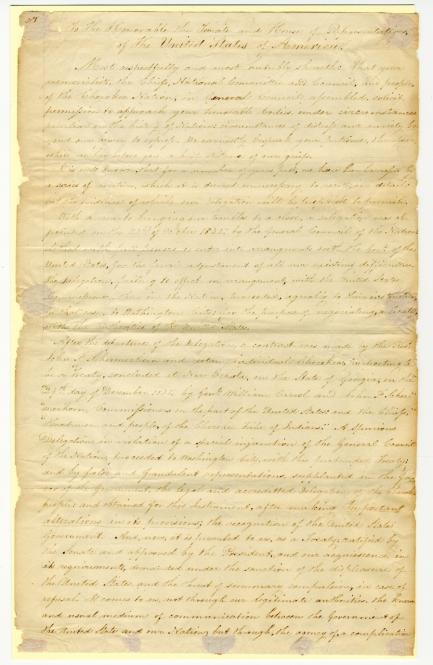 To the Honorable the Senate and House of Representatives
of the United States of America.
Most respectfully and most humbly showeth: That your
memorialists, the Chiefs, National Committee and Council, and people
of the Cherokee Nation, in General Council assembled, solicit
permission to approach your honorable bodies, under circumstances
peculiar in the history of Nations; circumstances of distress and anxiety
beyond our power to express. We earnestly bespeak your patience, therefore,
while we lay before you a brief of our griefs.
It is well known that for a number of years past, we have been harassed by
a series of vexations, which it is deemed unnecessary to recite in detail,
in the evidence of which our delegation will be to
With a view to bringing our troubles to a close, a delegation was ap
pointed on the 23rd of October 1835, by the General Council of the Nation,
clothed with full powers to enter into arrangements with the Govt. of the
United States, for the final adjustment of all our existing difficulties.
The delegation, failing to effect an arrangement, with the United States
Commissioner, then in the Nation, proceeded, agreeably to their instructions
in that case, to Washington City, for the purpose of negotiating a treaty
with the authorities of the United States.
After the departure of the Delegation, a contract was made by the Rev.
John F. Schermerhorn and certain individual Cherokees, purporting to
be a Treaty, concluded at New Echota, in the State of Georgia, on the
29th day of December 1835, by Genl. William Carroll and John F. Scher
merhorn, Commissioners on the part of the United States and the Chiefs,
Headmen and people of the Cherokee Tribe of Indians." A spurious
Delegation, in violation of a special injunction of the General Council
of the Nation, proceeded to Washington City, with this pretended Treaty,
and by false and fraudulent representations, supplanted in the fav
or of the Government, the legal and accredited Delegation of the Cherokee
people and obtained for this Instrument, after making important
alterations in its provisions, the recognition of the United States
Government. And, now, it is presented to us, as a Treaty, ratified by
the Senate and approved by the President, and our acquiescence in
its requirements, demanded under the sanction of the displeasure of
the United States, and the threat of summary compulsion, in case of
refusal. It comes to us, not through our legitimate authorities, the known
and usual medium of communication between the Government of
the United States and our Nation, but through the agency of a complication